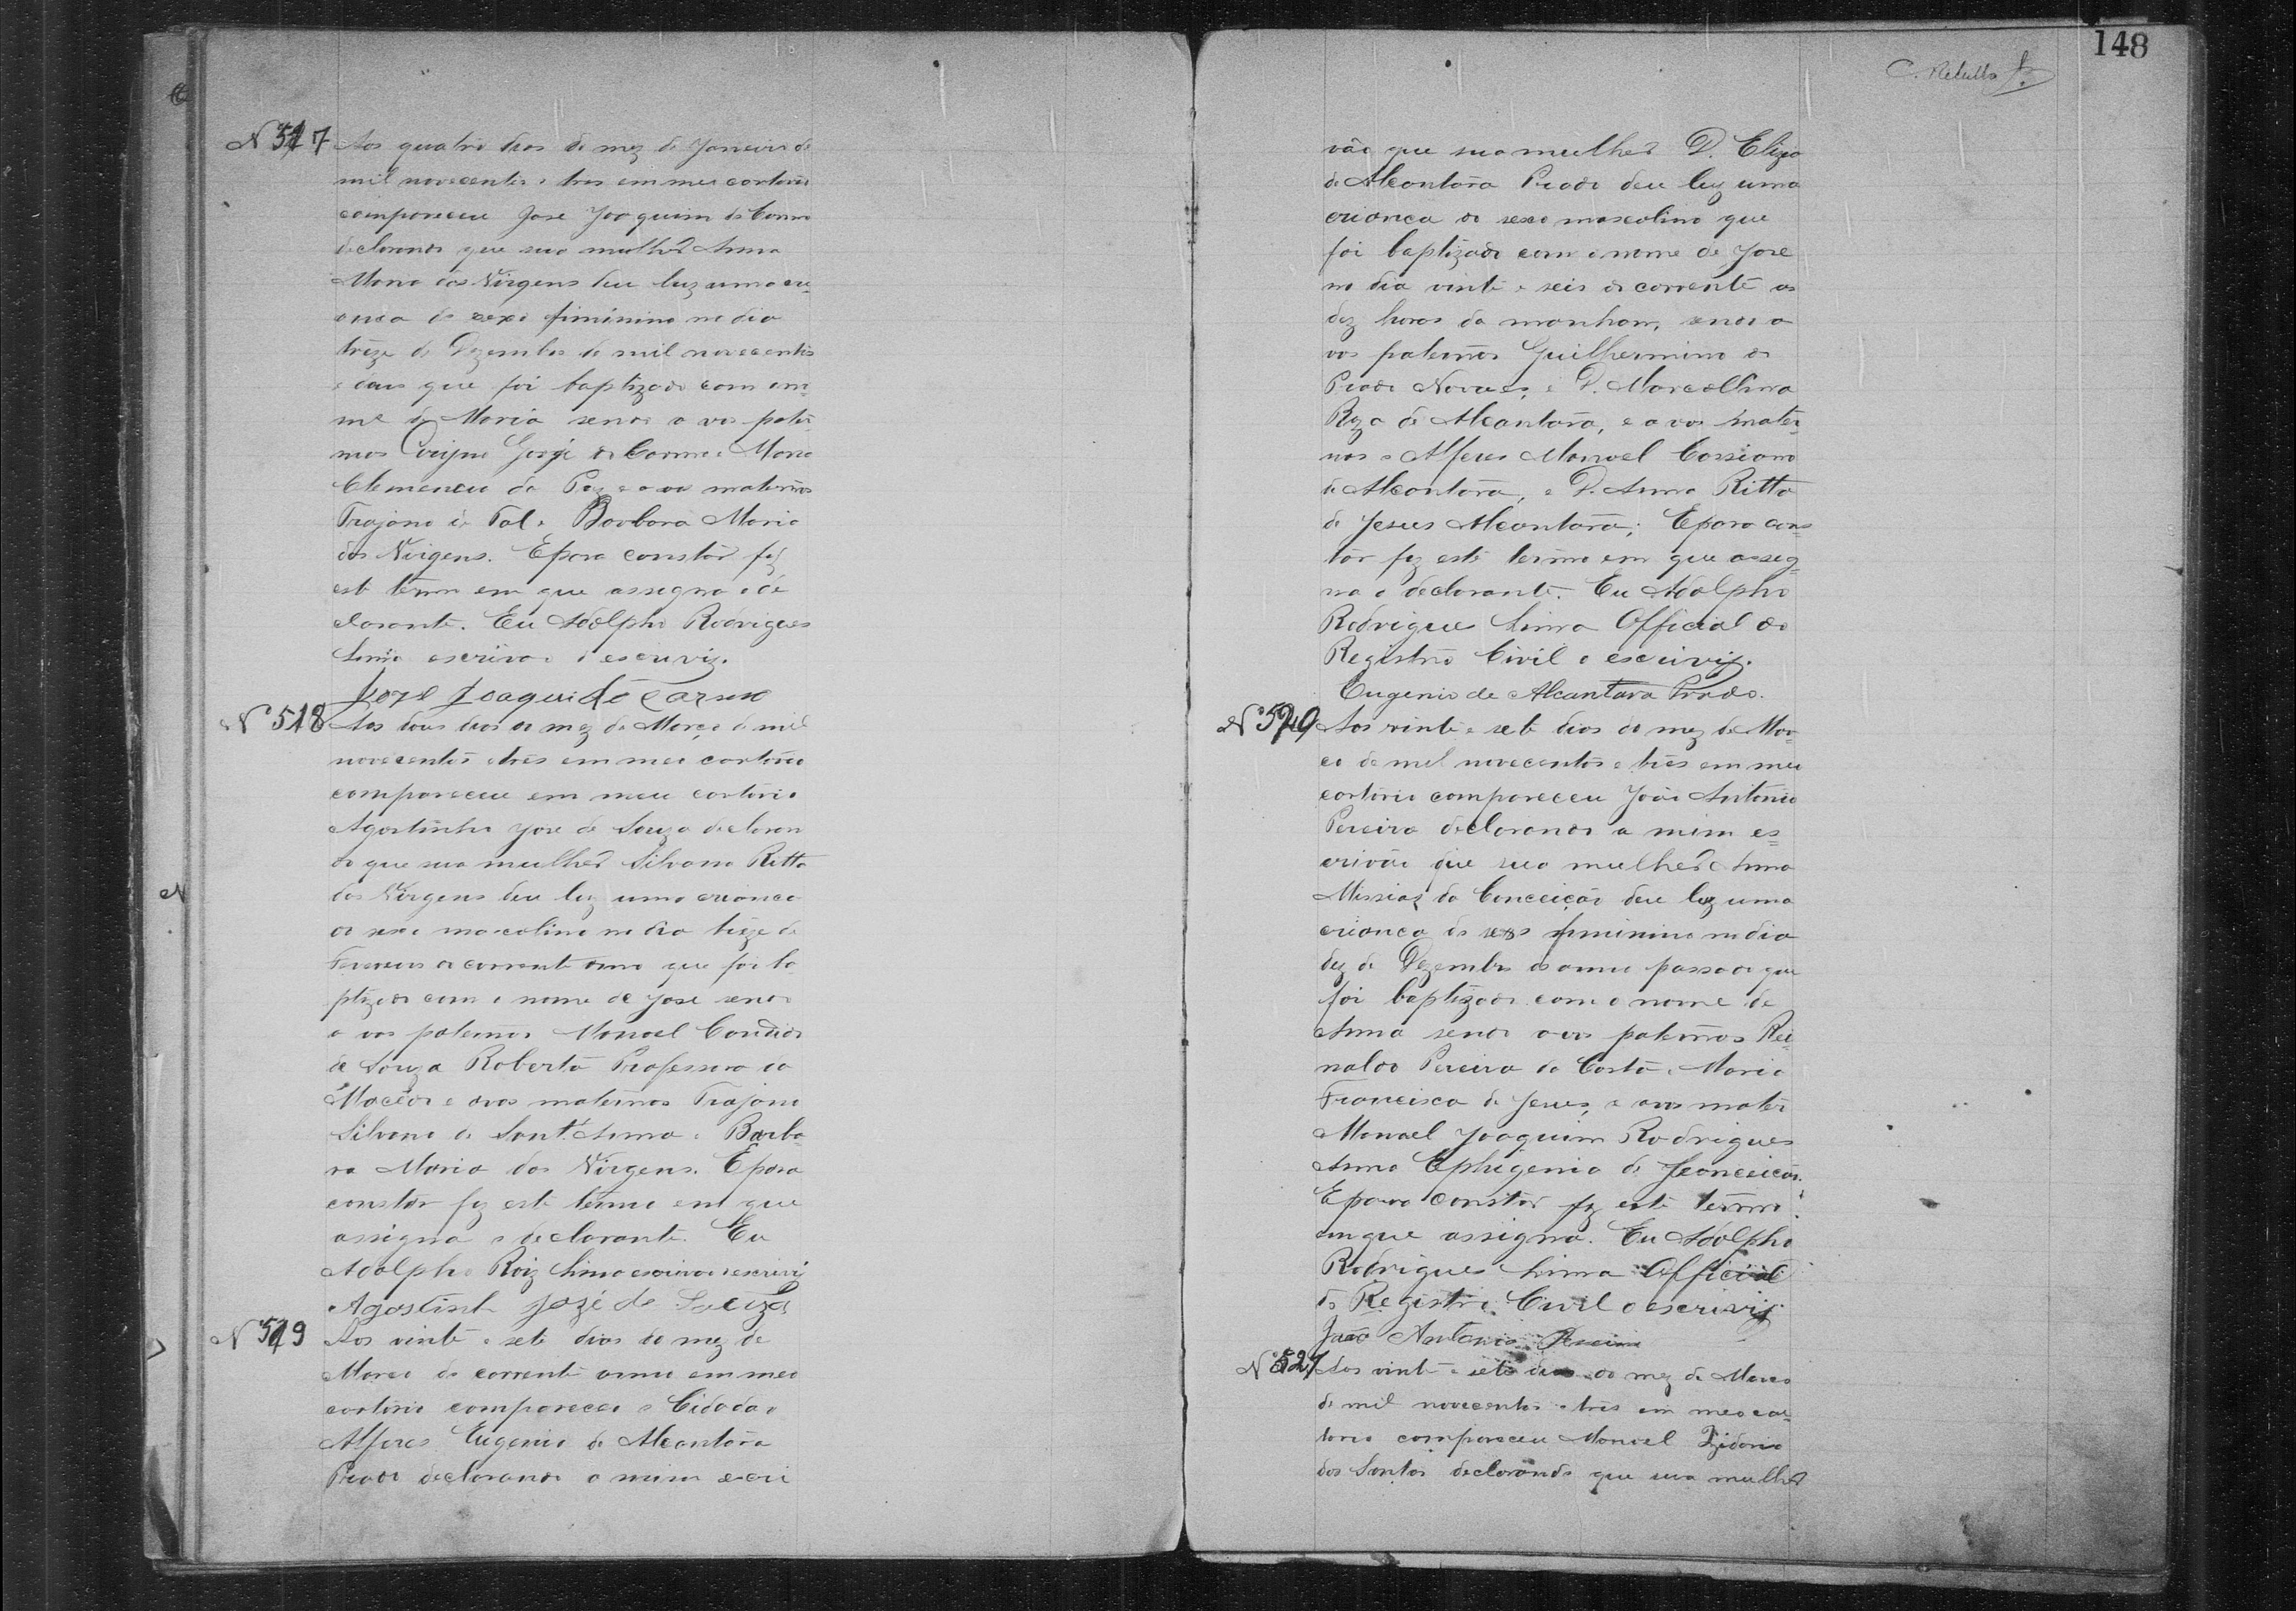 Nº 517 Aos quatro dias do mez de Janeiro de
mil novecentos e tres em meu cartorio
compareceu Jose Joaquim do Carmo
declarando que sua mulher Anna
Maria das Virgens deu luz uma cri
ança do sexo feminino no dia
treze de Dezembro de mil novecentos
e dous que foi baptizado com o no
me de Maria sendo avos pater
nos Jorge do Carmo e Maria
Clemencia da Paz e avos maternos
Trajano de Tal e Barbara Maria
das Virgens. E para constar fiz
este termo em que assigna o de
clarante. Eu Adolpho Rodrigues
Lima escrivão o escrevi.
Joze Joaqui do Carmo
Nº 518 Aos dous dias do mez de Março de mil
novecentos e tres em meu cartorio
compareceu em meu cartorio
Agostinho Jose de Souza declaran
do que sua mulher Silvana Ritta
das Virgens deu luz uma criança
do sexo mascolino no dia treze de
Fevereiro do corrente anno que foi ba
ptizado com o nome de Jose sendo
avos paternos Manoel Candido
de Souza Roberta Professora do
Macêdo e avos maternos Trajano
Silvano de Sant'Anna e Barba
ra Maria das Virgens. E para
constar fiz este termo em que
assigna o declarante. Eu
Adolpho Roiz Lima escrivão o escrevi
Agostinh Jozé de Souza
Nº 519 Aos vinte e sete dias do mez de
Março do corrente anno em meu
cartorio compareceu o Cidadão
Alferes Eugenio de Alcantara
Prado declarando a mim escri
148
vão que sua mulher D. Eliza
de Alcantara Prado deu luz uma
criança do sexo mascolino que
foi baptizado com o nome de Jose
no dia vinte e seis do corrente as
dez horas da manham, sendo a
vos paternos Guilhermino do
Prado Novaes, e D. Marcollina
Roza de Alcantara, e avos mater
nos o Alferes Manoel Cassiano
de Alcantara, e D. Anna Ritta
de Jesus Alcantara; E para cons
tar fiz este termo em que asseg
na o declarante. Eu Adolpho
Rodrigues Lima Official do
Registro Civil o escrivy.
Eugenio de Alcantara Prado.
Nº 520 Aos vinte e sete dias do mez de Mar
ço de mil novecentos e tres em meu
cartorio compareceu João Antonio
Pereira declarando a mim es
crivão que sua mulher Anna
Missias da Conceição deu luz uma
criança do sexo feminino no dia
dez de Dezembro do anno passado que
foi baptizado com o nome de
Anna sendo avos paternos Rei
naldo Pereira da Costa e Maria
Francisca de Jesus, e avos mater
Manoel Joaquim Rodrigues
Anna Ephigenia de
E para constar fiz este termo
em que assigna. Eu Adolpho
Rodrigues Lima Official
do Registro Civil o escrivy
João Antonio Pereira
Nº 521 Aos vinte e sete dias do mez de Março
de mil novecentos e tres em meu car
torio compareceu Manoel Izidorio
dos Santos declarando que sua mulher